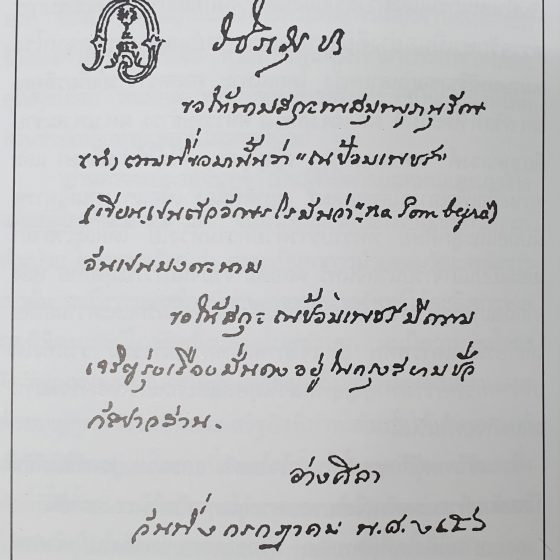 ขอให้นามสกุล
ตามที่ขอมานั้นว่า "ณป้อมเพชร์"
(เขียนเปนตัวอักษรโรมันว่า "na Pombejra")
อันเปนมงคลนาม
ขอให้สกุล ณป้อมเพชร์มีความ
เจริญรุ่งเรืองมั่นคงอยู่ในกรุงสยามชั่ว
กัลปาวสาน.
อ่างศิลา
วันที่ กรกฎาคม พ.ศ. ๒๔๕๖